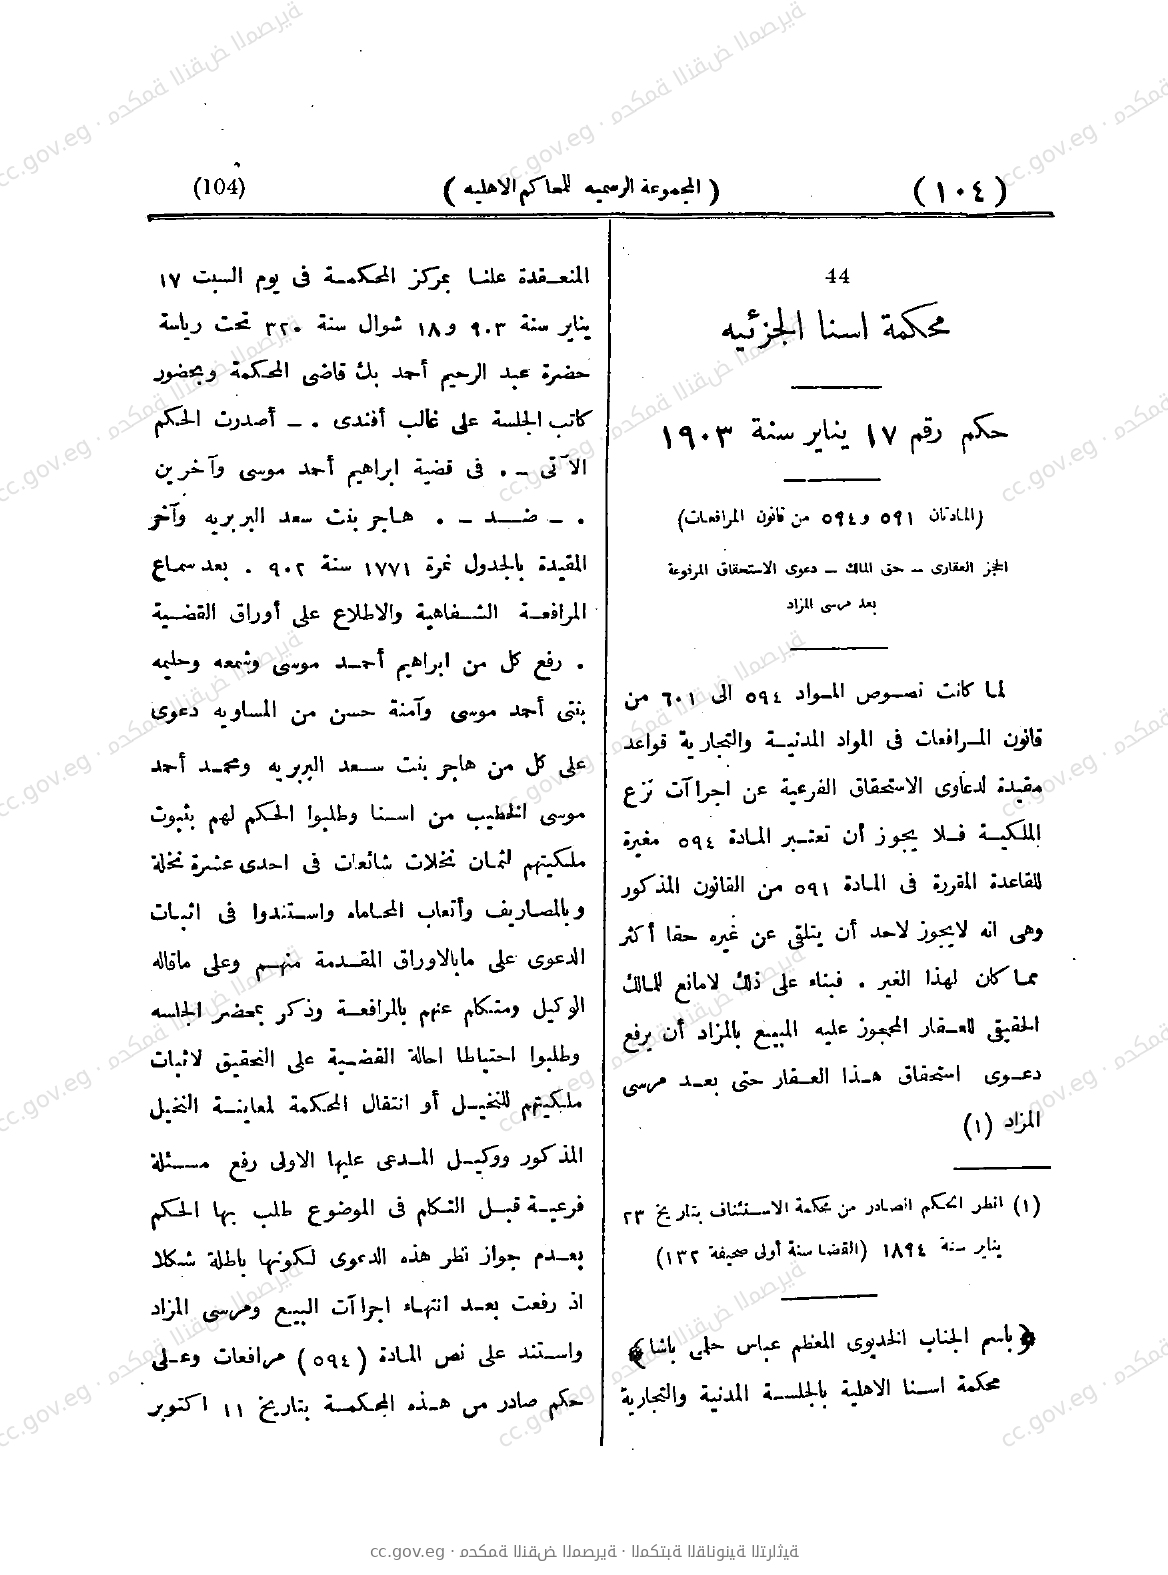 (١٠٤)
(المجموعة الرسميه للمحاكم الاهليه)
(104)
44
محكمة اسنا الجزئيه
حكم رقم ١٧ يناير سنة ١٩٠٣
(المادتان ٥٩١ و٥٩٤ من قانون المرافعات)
الحجز العقارى – حق المالك – دعوى الاستحقاق المرفوعة
بعد مرسى المزاد
لما كانت نصوص المواد ٥٩٤ الى ٦٠١ من
قانون المرافعات فى المواد المدنية والتجارية قواعد
مقيدة لدعاوى الاستحقاق الفرعية عن اجراآت نزع
الملكية فلا يجوز أن تعتبر المادة ٥٩٤ مغيرة
للقاعدة المقررة فى المادة ٥٩١ من القانون المذكور
وهى انه لايجوز لاحد أن يتلقى عن غيره حقا أكثر
مما كان لهذا الغير . فبناء على ذلك لامانع للمالك
الحقيقى للعقار المحجوز عليه المبيع بالمزاد أن يرفع
دعوى استحقاق هذا العقار حتى بعد مرسى
المزاد (١)
(١) انظر الحكم الصادر من محكمة الاستئناف بتاريخ ٢٣
يناير سنة ١٨٩٤ (القضا سنة أولى صحيفة ١٣٢)
﴿باسم الجناب الخديوى المعظم عباس حلمى باشا﴾
محكمة اسنا الاهلية بالجلسة المدنية والتجارية
المنعقدة علنا بمركز المحكمة فى يوم السبت ١٧
يناير سنة ٩٠٣ و١٨ شوال سنة ٣٢٠ تحت رياسة
حضرة عبد الرحيم أحمد بك قاضى المحكمة وبحضور
كاتب الجلسة على غالب أفندى . – أصدرت الحكم
الآتى – . فى قضية ابراهيم أحمد موسى وآخرين
. – ضد – . هاجر بنت سعد البربريه وآخر
المقيدة بالجدول نمرة ١٧٧١ سنة ٩٠٢ . بعد سماع
المرافعة الشفاهية والاطلاع على أوراق القضية
. رفع كل من ابراهيم أحمد موسى وشمعه وحليمه
بنتى أحمد موسى وآمنة حسن من المساويه دعوى
على كل من هاجر بنت سعد البربريه ومحمد أحمد
موسى الخطيب من اسنا وطلبوا الحكم لهم بثبوت
ملكيتهم لثمان نخلات شائعات فى احدى عشرة نخلة
وبالمصاريف وأتعاب المحاماه واستندوا فى اثبات
الدعوى على مابالاوراق المقدمة منهم وعلى ماقاله
الوكيل ومتكلم عنهم بالمرافعة وذكر بمحضر الجلسه
وطلبوا احتياطا احالة القضية على التحقيق لاثبات
ملكيتهم للنخيل أو انتقال المحكمة لمعاينة النخيل
المذكور ووكيل المدعى عليها الاولى رفع مسئلة
فرعية قبل التكلم فى الموضوع طلب بها الحكم
بعدم جواز نظر هذه الدعوى لكونها باطلة شكلا
اذ رفعت بعد انتهاء اجراآت البيع ومرسى المزاد
واستند على نص المادة (٥٩٤) مرافعات وعلى
حكم صادر من هذه المحكمة بتاريخ ١١ اكتوبر
cc.gov.eg · محكمة النقض المصرية · المكتبة القانونية التراثية